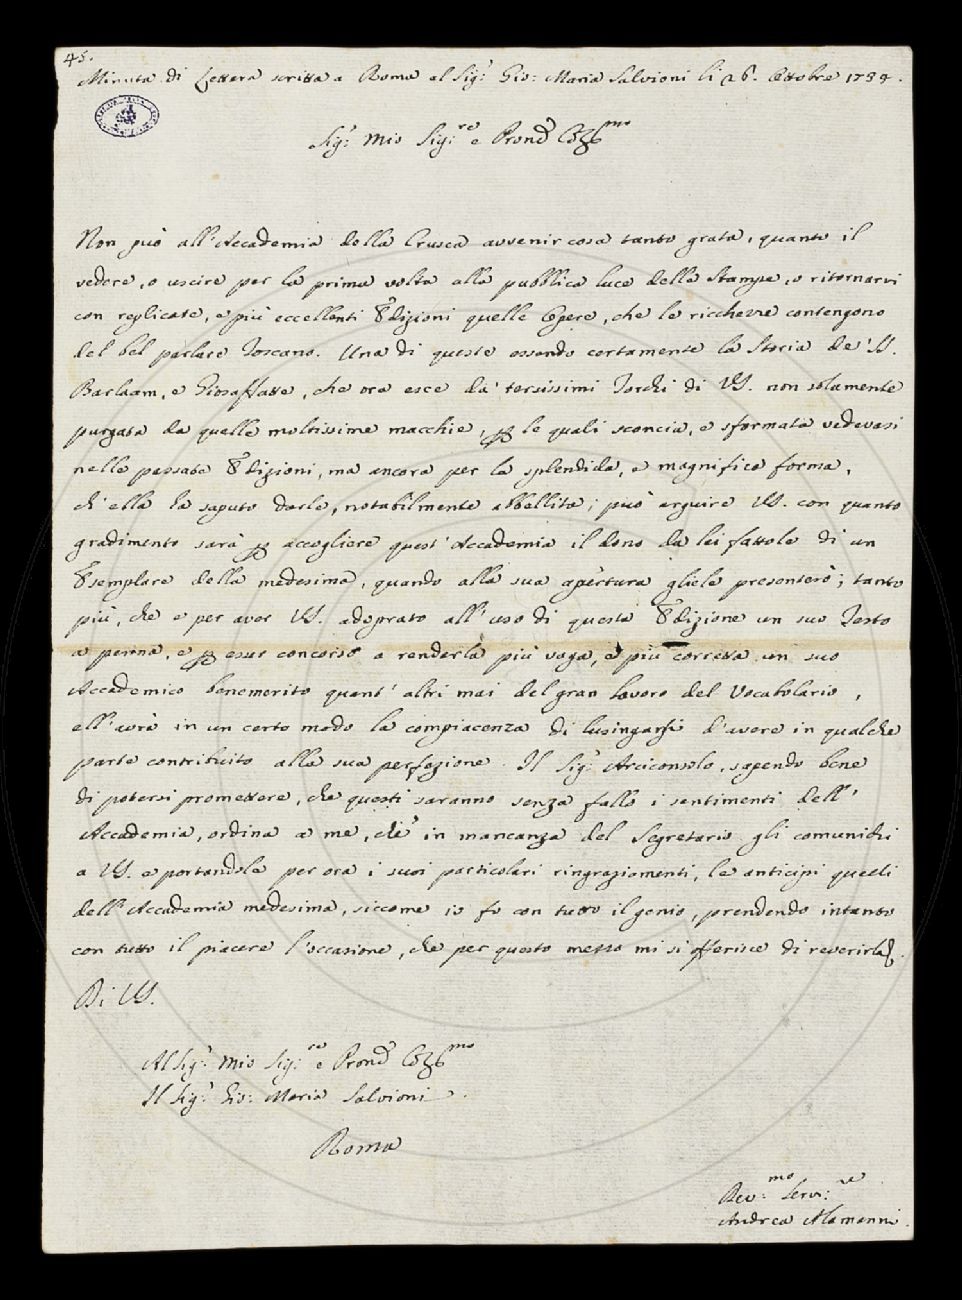 45.
Minuta di Lettera scritta a Roma al Sig.r Gio: Maria Salvioni li 26. Ottobre 1734.
Sig.r Mio Sig.re e Pron
Non può all'Accademia della Crusca avvenir cosa tanto grata, quanto il
vedere, o uscire per la prima volta alla pubblica luce delle Stampe, o ritornarvi
con replicate, e più eccellenti Edizioni quelle Opere, che le ricchezze contengono
del bel parlare Toscano. Una di queste essendo certamente la Storia de' SS.
Barlaam, e Giosaffatte, che ora esce da' tersissimi Torchi di VS. non solamente
purgata da quelle moltissime macchie, per le quali sconcia, e sformata vedevasi
nelle passate Edizioni, ma ancora per la splendida, e magnifica forma,
ch'ella ha saputo darle, notabilmente abbellita; può arguire VS. con quanto
gradimento sarà per accogliere quest'Accademia il dono da lei fattole di un
Esemplare della medesima, quando alla sua apertura gliele presenterò; tanto
più, che e per aver VS. adoprato all'uso di questa Edizione un suo Testo
a penna, e per esser concorso a renderla più vaga, e più corretta un suo
Accademico benemerito quant'altri mai del gran lavoro del Vocabolario,
ell'avrà in un certo modo la compiacenza di lusingarsi d'avere in qualche
parte contribuito alla sua perfezione. Il Sig.r Arciconsolo, sapendo bene
di potersi promettere, che questi saranno senza fallo i sentimenti dell'
Accademia, ordina a me, che in mancanza del Segretario gli comunichi
a VS. e portandole per ora i suoi particolari ringraziamenti, le anticipi quelli
dell'Accademia medesima, siccome io fo con tutto il genio, prendendo intanto
con tutto il piacere l'occasione, che per questo mezzo mi si offerisce di reverirla
Di VS.
Al Sig.r Mio Sig.re e Pron
Il Sig.r Gio: Maria Salvioni.
Roma
Dev.mo Serv.re
Andrea Alamanni.